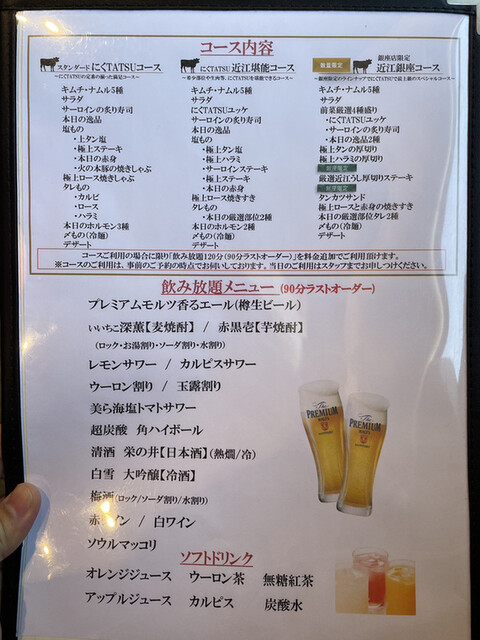 コース内容
スタンダード にくTATSUコース
～にくTATSUの定番の揃った満足コース～
キムチ・ナムル5種
サラダ
サーロインの炙り寿司
本日の逸品
塩もの
・上タン塩
・極上ステーキ
・本日の赤身
・火の本豚の焼きしゃぶ
極上ロース焼きしゃぶ
タレもの
・カルビ
・ロース
・ハラミ
本日のホルモン3種
〆もの(冷麺)
デザート
にくTATSU 近江堪能コース
～希少部位や生肉等、にくTATSUを堪能できるコース～
キムチ・ナムル5種
サラダ
にくTATSUユッケ
サーロインの炙り寿司
本日の逸品
塩もの
・極上タン塩
・極上ハラミ
・サーロインステーキ
・極上ステーキ
・本日の赤身
極上ロース焼きすき
タレもの
・本日の厳選部位2種
本日のホルモン2種
〆もの(冷麺)
デザート
数量限定
銀座店限定
近江銀座コース
～銀座限定のラインナップでにくTATSUで最上級のスペシャルコース～
キムチ・ナムル5種
サラダ
前菜厳選4種盛り
・にくTATSUユッケ
サーロインの炙り寿司
本日の逸品2種
極上タンの厚切り
極上ハラミの厚切り
銀座限定
厳選近江うし厚切りステーキ
銀座限定
タンカツサンド
極上ロースと赤身の焼きすき
本日の厳選部位タレ2種
〆もの(冷麺)
デザート
コースご利用の場合に限り「飲み放題120分(90分ラストオーダー)」を料金追加でご利用頂けます。
※コースのご利用は、事前のご予約の時点でお伺いしております。当日のご利用はスタッフまでお申しつけください。
飲み放題メニュー (90分ラストオーダー)
プレミアムモルツ香るエール(樽生ビール)
いいちこ深薫【麦焼酎】 / 赤黒壱【芋焼酎】
(ロック・お湯割り・ソーダ割り・水割り)
レモンサワー / カルピスサワー
ウーロン割り / 玉露割り
美ら海塩トマトサワー
超炭酸 角ハイボール
清酒 栄の井【日本酒】(熱燗/冷)
白雪 大吟醸【冷酒】
梅酒(ロック/ソーダ割り/水割り)
赤ワイン / 白ワイン
ソウルマッコリ
The
PREMIUM
MALT'S
SUNTORY
The
PREMIUM
MALT'S
SUNTORY
ソフトドリンク
オレンジジュース ウーロン茶 無糖紅茶
アップルジュース カルピス 炭酸水